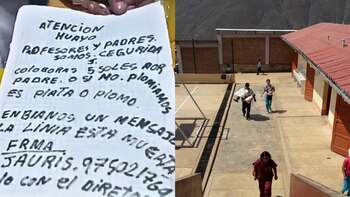 ATENCION
HUAYO
PROFESORES Y PADRES.
SOMOS. CEGURIDA
COLOBORAS 5 SOLES POR
PADRE. O SI NO. PIOMIAMOS
ES PLATA O PIOMO.
ENBIANOS UN MENSAJ
LA LINIA ESTA MUERTA
FRMA
JAURIS. 975021769
lo CON EL DIRETO